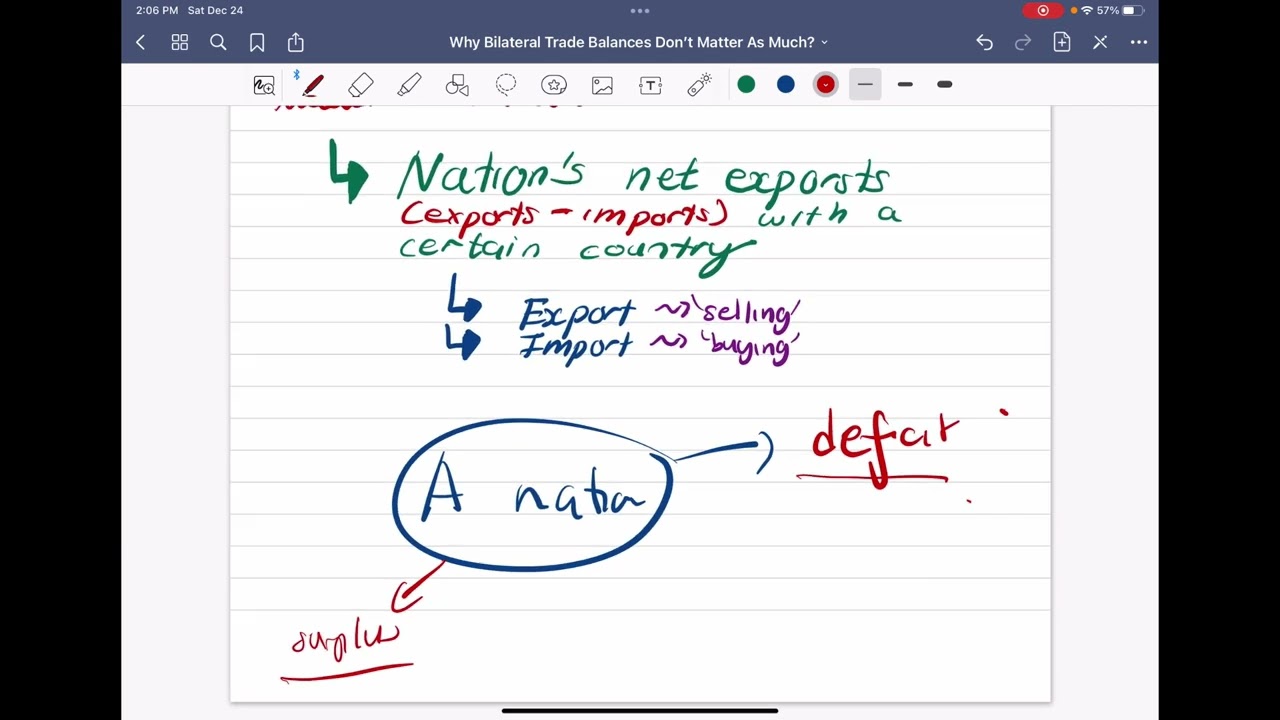 2:06 PM Sat Dec 24
57%
Why Bilateral Trade Balances Don't Matter As Much?
Nation's net exporsts
(exports - imports) with a
certain country
Export ~> 'selling'
Import ~> 'buying'
deficit
A nation
surplus